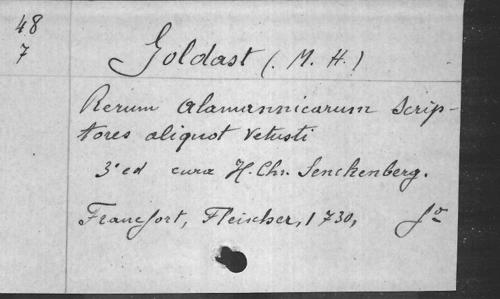 48
7
Goldast (. M. H.)
Rerum Alamannicarum Scrip-
tores aliquot vetusti
3ᵉ ed cura H. Chr. Senckenberg.
Francfort, Fleischer, 1730, fº